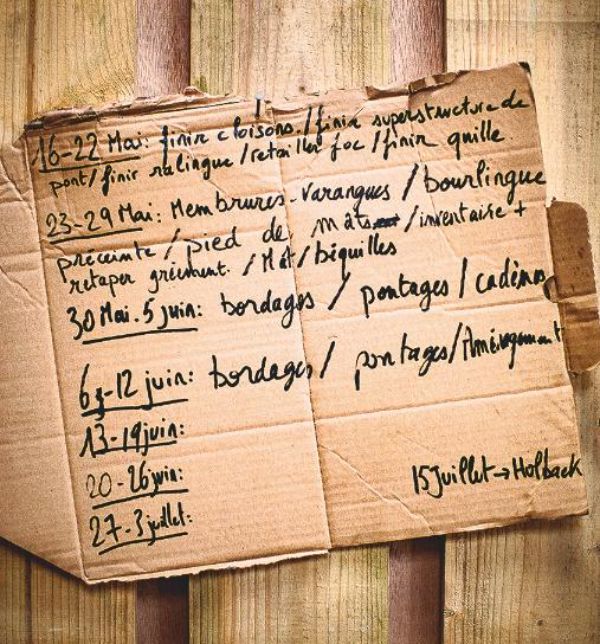 16-22 Mai: finir cloisons / finir superstructure de
pont / finir ralingue / retailler foc / finir quille
23-29 Mai: Membrures - Varangues / bourlingue
préceinte / pied de mâts / inventaire +
retaper gréement. / Mât / béquilles
30 Mai. 5 juin: bordages / pontages / cadènes
6-12 juin: bordages / pontages / Aménagement
13-19 juin:
20-26 juin:
27-3 juillet:
15 Juillet → Holbaek